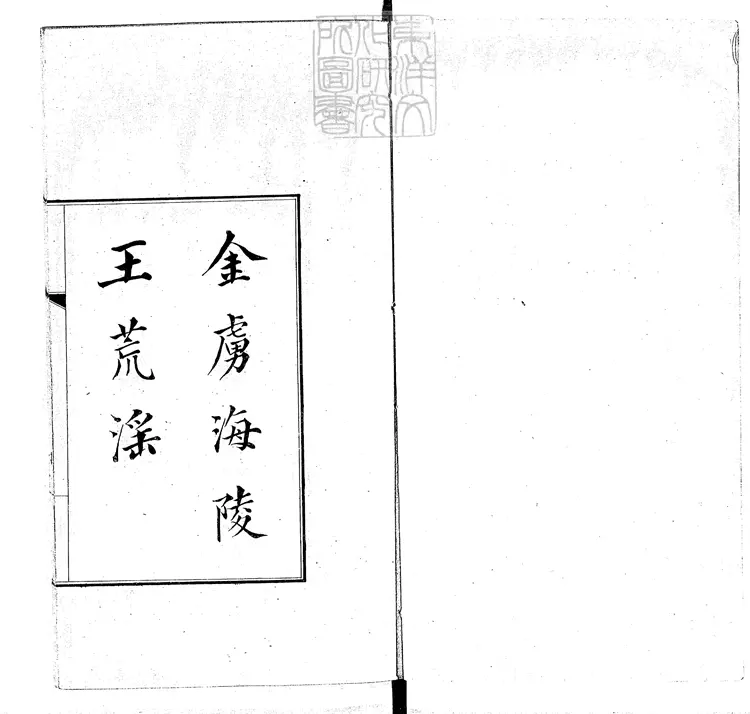 東洋文
化研究
所圖書
金虜海陵
王荒滛